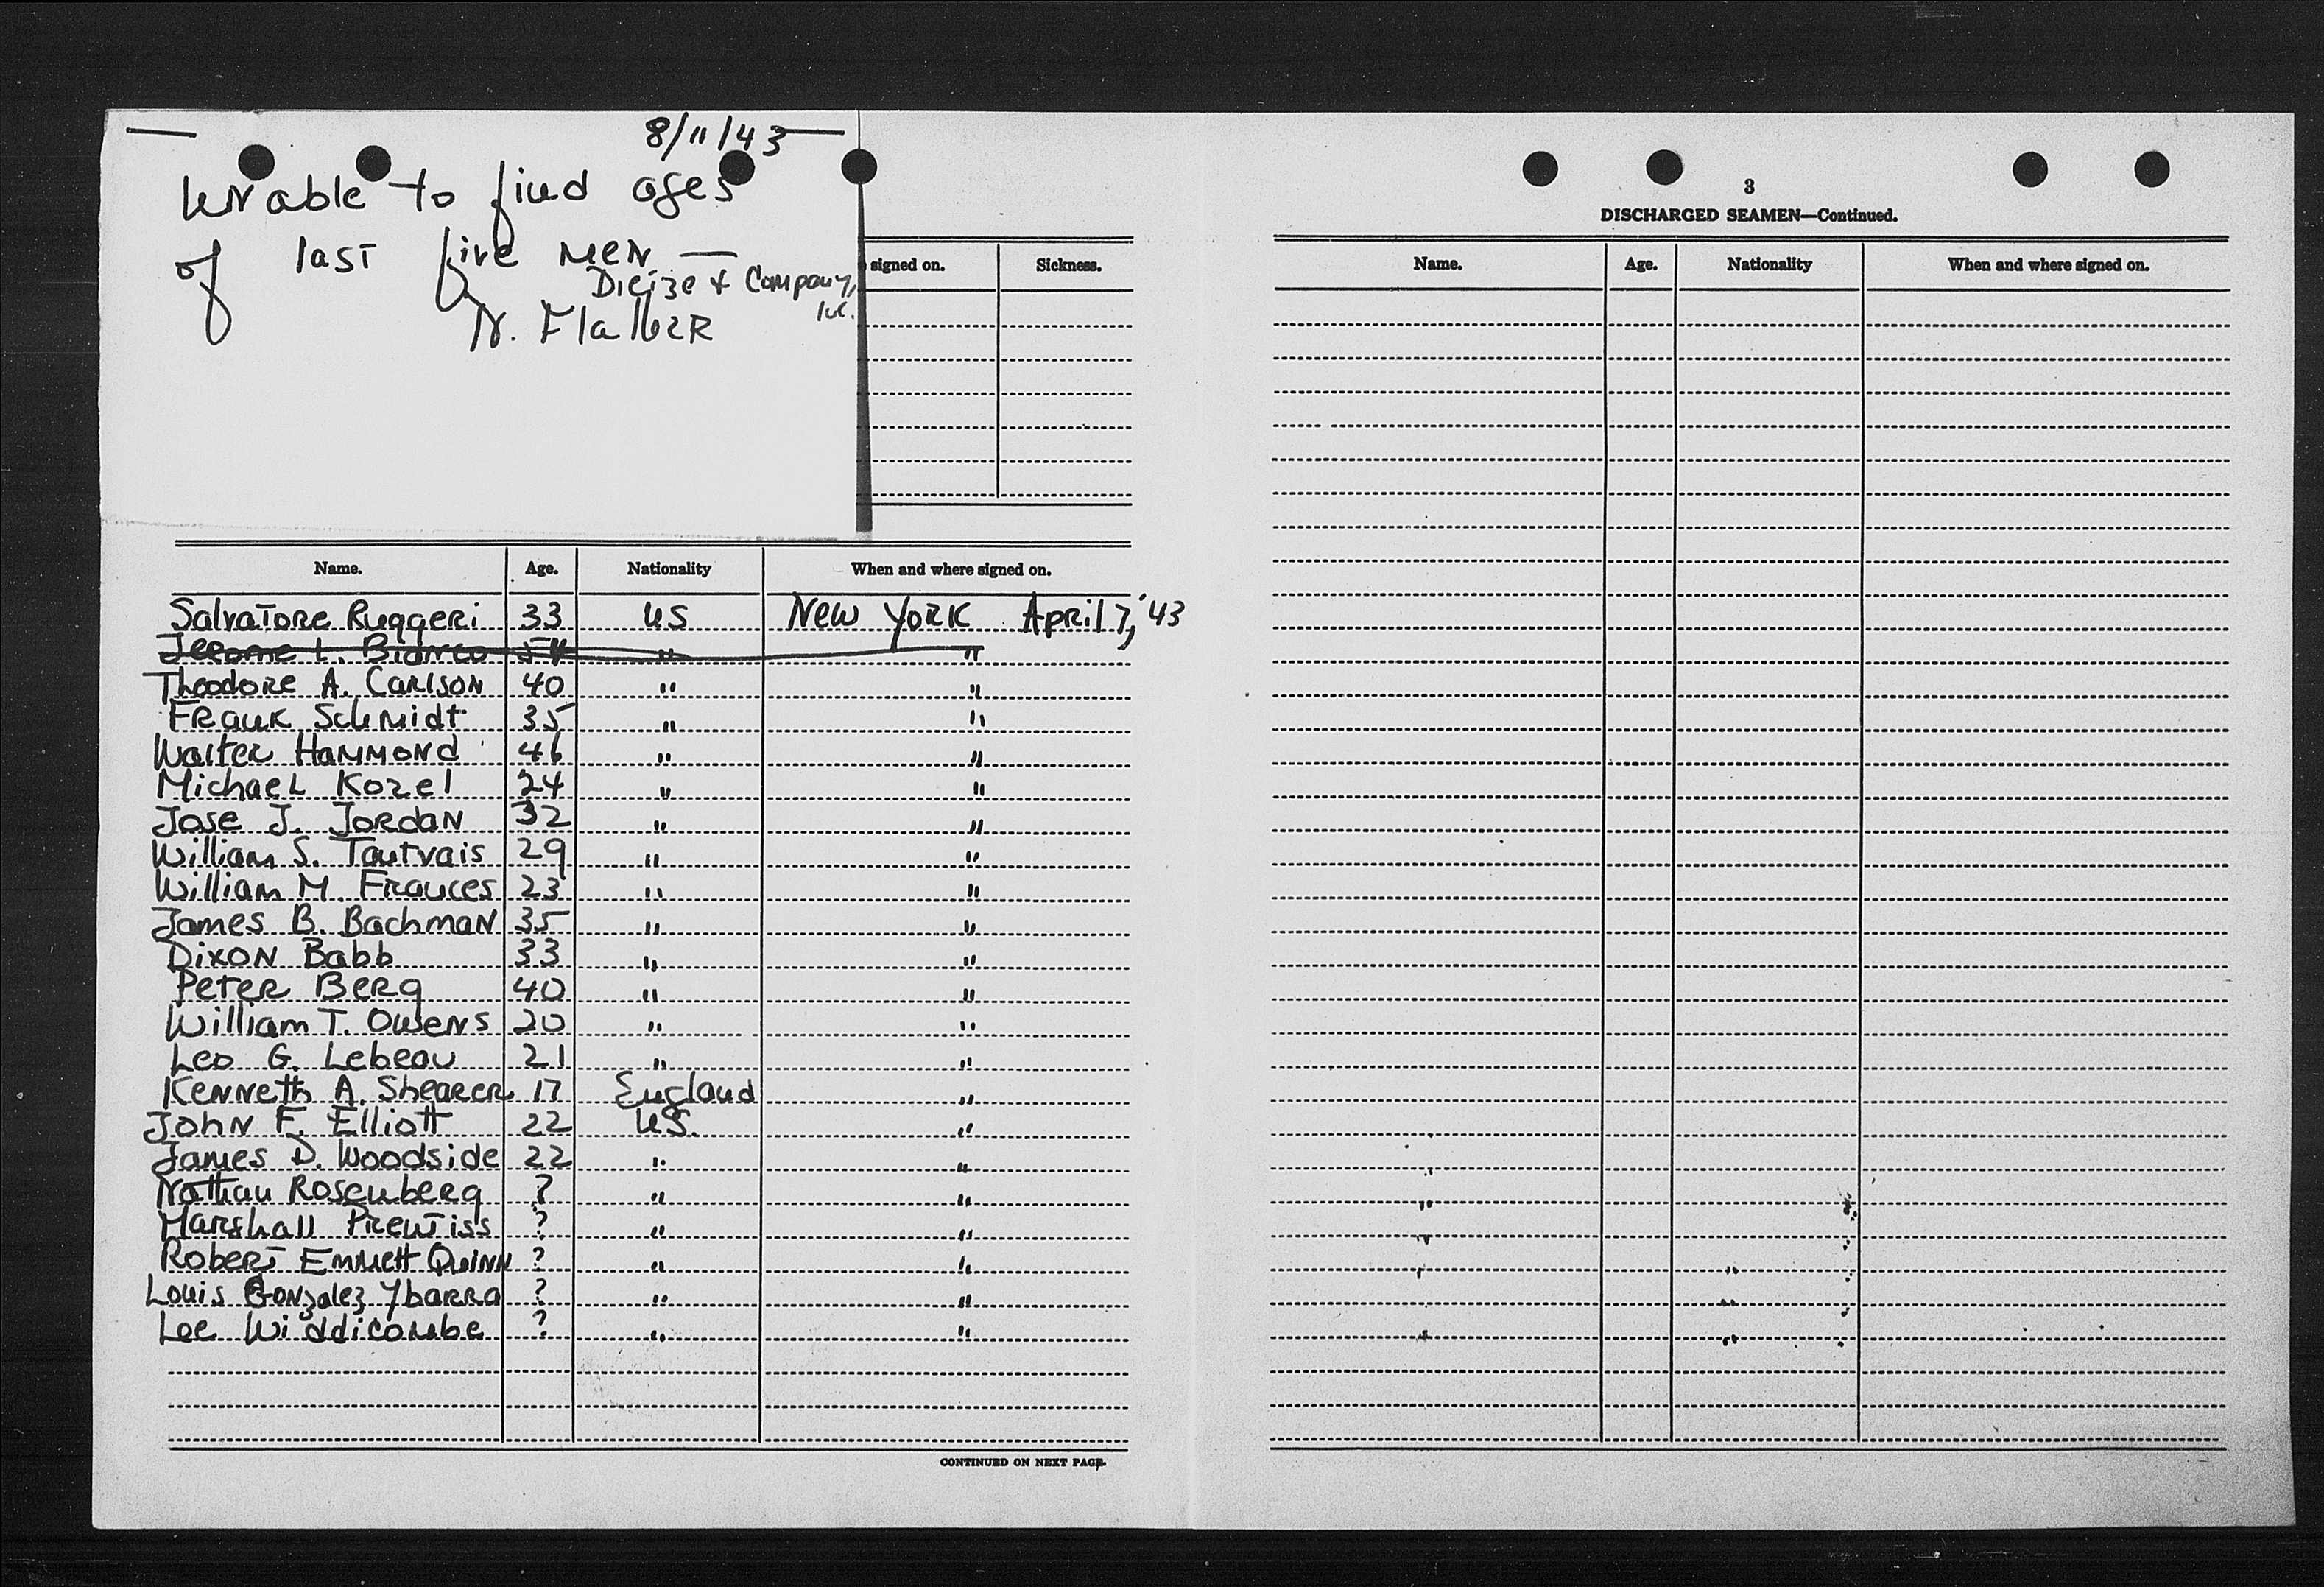 8/11/43
Unable to find ages
of last five men —
& Company,
Inc.
N.
signed on. Sickness.
Name. Age. Nationality When and where signed on.
Salvatore Ruggeri 33 US New York April 7, '43
Jerome L. Bianco 54 " "
Theodore A. Carlson 40 " "
Frank Schmidt 35 " "
Walter Hammond 46 " "
Michael Kozel 24 " "
Jose J. Jordan 32 " "
William S. Tautvais 29 " "
William M. Frances 23 " "
James B. Bachman 35 " "
Dixon Babb 33 " "
Peter Berg 40 " "
William T. Owens 20 " "
Leo G. Lebeau 21 " "
Kenneth A. Shearer 17 England "
John F. Elliott 22 US. "
James D. Woodside 22 " "
Nathan Rosenberg ? " "
Marshall Prewtiss ? " "
Robert Emmett Quinn ? " "
Louis Gonzalez Ybarra ? " "
Lee Widdicombe ? " "
CONTINUED ON NEXT PAGE.
3
DISCHARGED SEAMEN—Continued.
Name. Age. Nationality When and where signed on.